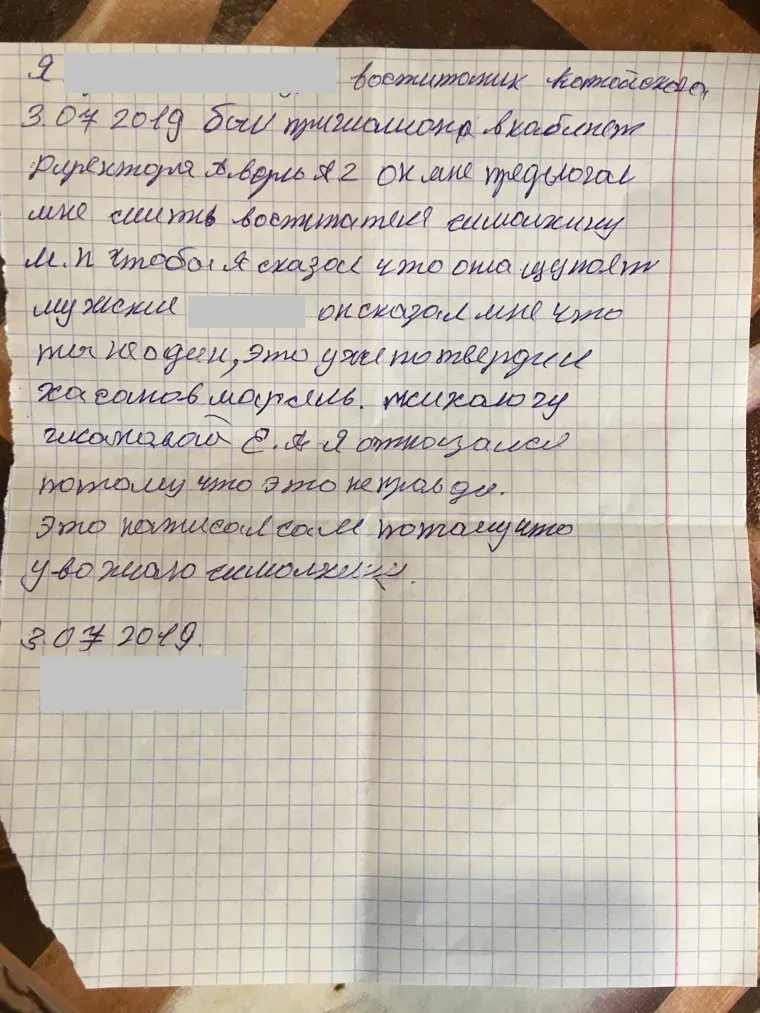 Я воспитаник
3.07 2019 был в кабинет
директора А 2 он мне предлогал
мне воспитателя симолкину
М.П чтобы я сказал что она щупоет
мужские он сказал мне что
ты не один, это уже потвердил
хасанов марсель. психологу
Е.А я отказался
потому что это не правда.
это написал сам потому что
увожаю симолкину.
3.07 2019.